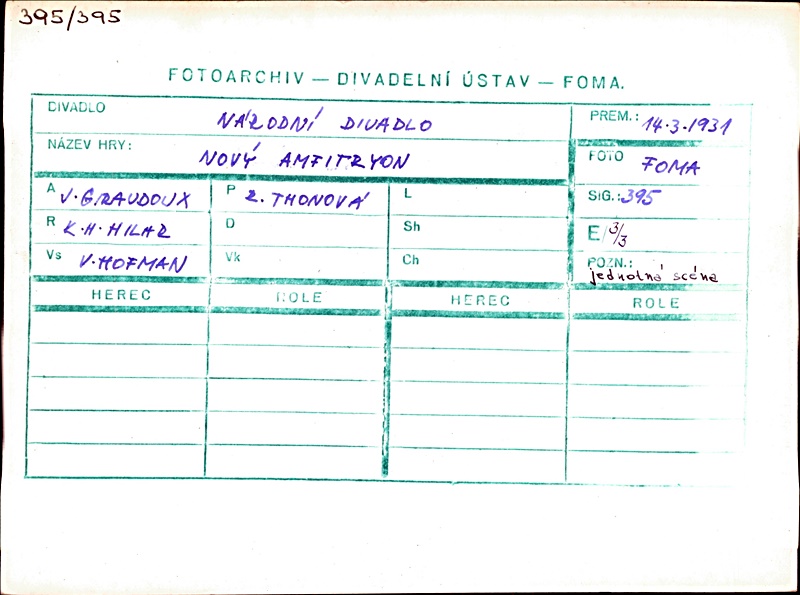 395/395
FOTOARCHIV — DIVADELNÍ ÚSTAV — FOMA.
DIVADLO NÁRODNÍ DIVADLO PREM.: 14.3.1931
NÁZEV HRY: NOVÝ AMFITRYON FOTO FOMA
A J. GIRAUDOUX P Z. THONOVÁ L SIG.: 395
R K.H. HILAR D Sh E/3/3
Vs V. HOFMAN Vk Ch POZN.: jednotná scéna
HEREC ROLE HEREC ROLE